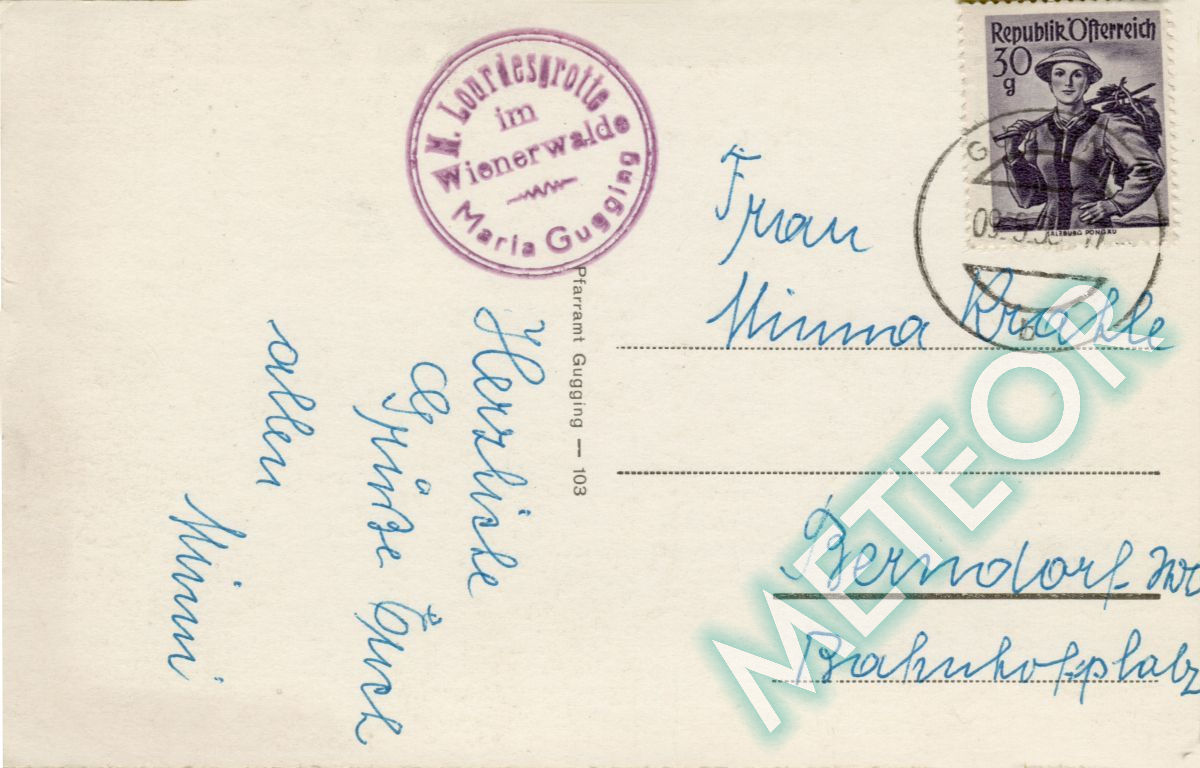 M. Lourdesgrotte
im
Wienerwalde
Maria Gugging
Pfarramt Gugging — 103
Herzliche
Grüße Euch
allen
Minni
Republik Österreich
30
g
SALZBURG PONGAU
Frau
Minna
Berndorf
Bahnhofplatz
METEOR